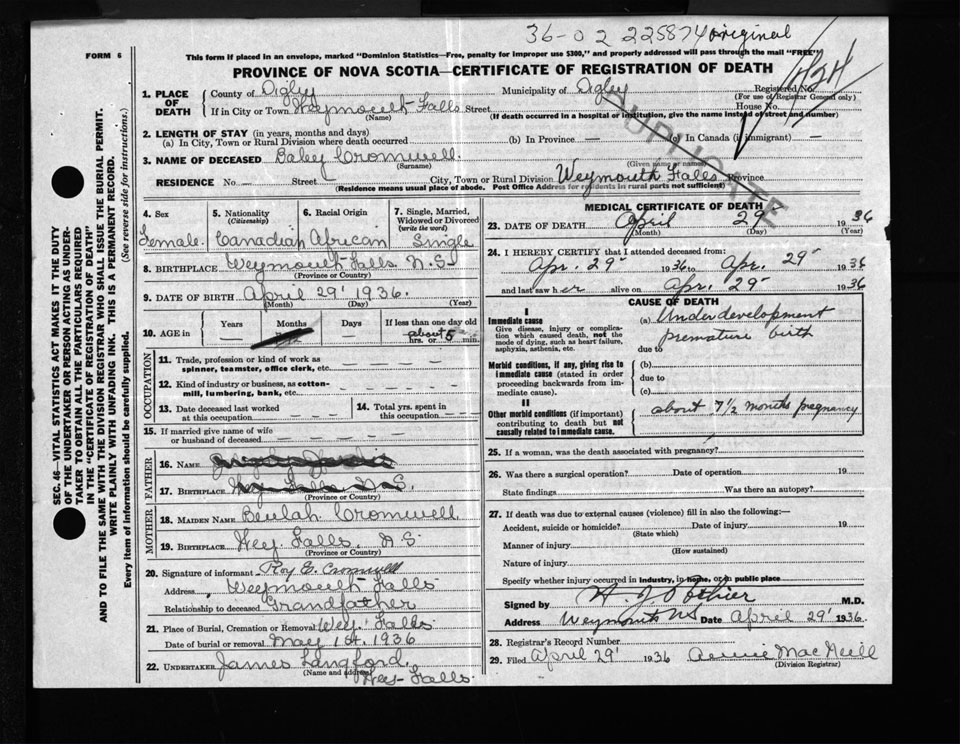 36-02 225874 original
FORM 6
This form if placed in an envelope, marked "Dominion Statistics—Free, penalty for improper use $300," and properly addressed will pass through the mail "FREE"
PROVINCE OF NOVA SCOTIA—CERTIFICATE OF REGISTRATION OF DEATH
424
DUPLICATE
SEC. 46—VITAL STATISTICS ACT MAKES IT THE DUTY
OF THE UNDERTAKER OR PERSON ACTING AS UNDER-
TAKER TO OBTAIN ALL THE PARTICULARS REQUIRED
IN THE "CERTIFICATE OF REGISTRATION OF DEATH"
AND TO FILE THE SAME WITH THE DIVISION REGISTRAR WHO SHALL ISSUE THE BURIAL PERMIT.
WRITE PLAINLY WITH UNFADING INK. THIS IS A PERMANENT RECORD.
Every item of Information should be carefully supplied. (See reverse side for instructions.)
1. PLACE OF DEATH
County of Digby Municipality of Digby Registered No.
(For use of Registrar General only)
If in City or Town Weymouth Falls Street House No.
(Name) (If death occurred in a hospital or institution, give the name instead of street and number)
2. LENGTH OF STAY (in years, months and days)
(a) In City, Town or Rural Division where death occurred (b) In Province — (c) In Canada (if immigrant) —
3. NAME OF DECEASED Baby Cromwell
(Surname) (Given name or names)
RESIDENCE No — Street City, Town or Rural Division Weymouth Falls Province
(Residence means usual place of abode. Post Office Address for residents in rural parts not sufficient)
4. Sex
Female
5. Nationality
(Citizenship)
Canadian
6. Racial Origin
African
7. Single, Married,
Widowed or Divorced
(write the word)
Single
8. BIRTHPLACE Weymouth Falls N.S.
(Province or Country)
9. DATE OF BIRTH April 29' 1936.
(Month) (Day) (Year)
10. AGE in
Years —
Months
Days
If less than one day old
about 5
hrs. or min.
OCCUPATION
11. Trade, profession or kind of work as
spinner, teamster, office clerk, etc. — —
12. Kind of industry or business, as cotton-
mill, lumbering, bank, etc. — — — —
13. Date deceased last worked
at this occupation — — —
14. Total yrs. spent in
this occupation — — —
15. If married give name of wife
or husband of deceased — — — —
FATHER
16. NAME
17. BIRTHPLACE Wey Falls N.S.
(Province or Country)
MOTHER
18. MAIDEN NAME Beulah Cromwell
19. BIRTHPLACE Wey. Falls. N S.
(Province or Country)
20. Signature of informant Roy E. Cromwell
Address Weymouth Falls
Relationship to deceased Grandfather
21. Place of Burial, Cremation or Removal Wey. Falls
Date of burial or removal May 1st. 1936
22. UNDERTAKER James Langford.
(Name and address)
Wey- Falls.
MEDICAL CERTIFICATE OF DEATH
23. DATE OF DEATH April 29 1936
(Month) (Day) (Year)
24. I HEREBY CERTIFY that I attended deceased from:
Apr. 29 1936 to Apr. 29 1936
and last saw her alive on Apr. 29 1936
CAUSE OF DEATH
I
Immediate cause
Give disease, injury or complica-
tion which caused death, not the
mode of dying, such as heart failure,
asphyxia, asthenia, etc.
(a) Underdevelopment
premature birth
due to
Morbid conditions, if any, giving rise to
immediate cause (stated in order
proceeding backwards from im-
mediate cause).
(b)
due to
(c)
II
Other morbid conditions (if important)
contributing to death but not
causally related to immediate cause.
about 7 1/2 months pregnancy
25. If a woman, was the death associated with pregnancy?
26. Was there a surgical operation? Date of operation 19
State findings Was there an autopsy?
27. If death was due to external causes (violence) fill in also the following:—
Accident, suicide or homicide? Date of injury 19
(State which)
Manner of injury
(How sustained)
Nature of injury
Specify whether injury occurred in industry, in home, or in public place
Signed by H J Pothier M.D.
Address Weymouth NS Date April 29' 1936.
28. Registrar's Record Number
29. Filed April 29' 1936 Annie MacNeill
(Division Registrar)